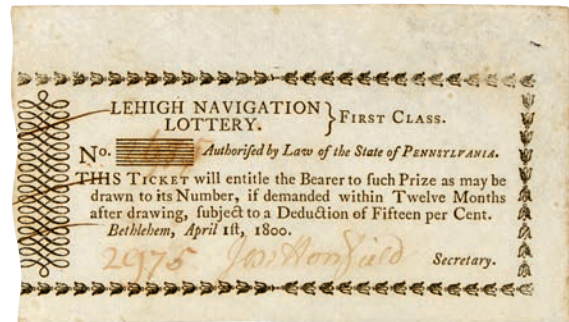 LEHIGH NAVIGATION
LOTTERY. } FIRST CLASS.
No. Authoriſed by Law of the State of PENNSYLVANIA.
THIS TICKET will entitle the Bearer to ſuch Prize as may be
drawn to its Number, if demanded within Twelve Months
after drawing, ſubject to a Deduction of Fifteen per Cent.
Bethlehem, April 1ſt, 1800.
2975 Jos: Horsfield Secretary.